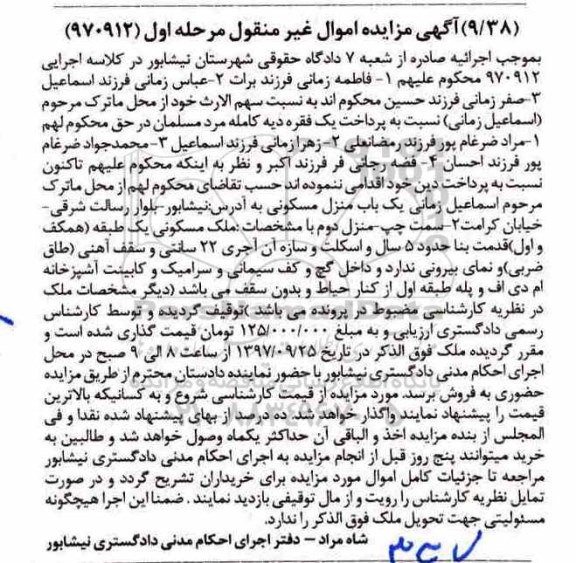 (۹/۳۸) آگهی مزایده اموال غیر منقول مرحله اول (۹۷۰۹۱۲)
بموجب اجرائیه صادره از شعبه ۷ دادگاه حقوقی شهرستان نیشابور در کلاسه اجرایی
۹۷۰۹۱۲ محکوم علیهم ۱- فاطمه زمانی فرزند برات ۲-عباس زمانی فرزند اسماعیل
۳-صفر زمانی فرزند حسین محکوم اند به نسبت سهم الارث خود از محل ماترک مرحوم
(اسماعیل زمانی) نسبت به پرداخت یک فقره دیه کامله مرد مسلمان در حق محکوم لهم
۱-مراد ضرغام پور فرزند رمضانعلی ۲-زهرا زمانی فرزند اسماعیل ۳-محمدجواد ضرغام
پور فرزند احسان ۴- فضه رجائی فر فرزند اکبر و نظر به اینکه محکوم علیهم تاکنون
نسبت به پرداخت دین خود اقدامی ننموده اند حسب تقاضای محکوم لهم از محل ماترک
مرحوم اسماعیل زمانی یک باب منزل مسکونی به آدرس:نیشابور-بلوار رسالت شرقی-
خیابان کرامت۲-سمت چپ-منزل دوم با مشخصات :ملک مسکونی یک طبقه (همکف
و اول)قدمت بنا حدود ۵ سال و اسکلت و سازه آن آجری ۲۲ سانتی و سقف آهنی (طاق
ضربی)و نمای بیرونی ندارد و داخل گچ و کف سیمانی و سرامیک و کابینت آشپزخانه
ام دی اف و پله طبقه اول از کنار حیاط و بدون سقف می باشد (دیگر مشخصات ملک
در نظریه کارشناسی مضبوط در پرونده می باشد )توقیف گردیده و توسط کارشناس
رسمی دادگستری ارزیابی و به مبلغ ۱۲۵/۰۰۰/۰۰۰ تومان قیمت گذاری شده است و
مقرر گردیده ملک فوق الذکر در تاریخ ۱۳۹۷/۰۹/۲۵ از ساعت ۸ الی ۹ صبح در محل
اجرای احکام مدنی دادگستری نیشابور با حضور نماینده دادستان محترم از طریق مزایده
حضوری به فروش برسد. مورد مزایده از قیمت کارشناسی شروع و به کسانیکه بالاترین
قیمت را پیشنهاد نمایند واگذار خواهد شد. ده درصد از بهای پیشنهاد شده نقدا و فی
المجلس از بنده مزایده اخذ و الباقی آن حداکثر یکماه وصول خواهد شد و طالبین به
خرید میتوانند پنج روز قبل از انجام مزایده به اجرای احکام مدنی دادگستری نیشابور
مراجعه تا جزئیات کامل اموال مورد مزایده برای خریداران تشریح گردد و در صورت
تمایل نظریه کارشناس را رویت و از مال توقیفی بازدید نمایند . ضمنا این اجرا هیچگونه
مسئولیتی جهت تحویل ملک فوق الذکر را ندارد.
شاه مراد - دفتر اجرای احکام مدنی دادگستری نیشابور